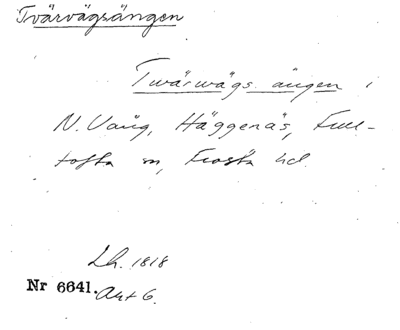 Tvärvägsängen
Twärwägs ängen i
N. Vång, Häggenäs, Full-
tofta sn, Frosta hd.
Lh. 1818
Nr 6641. Akt 6.